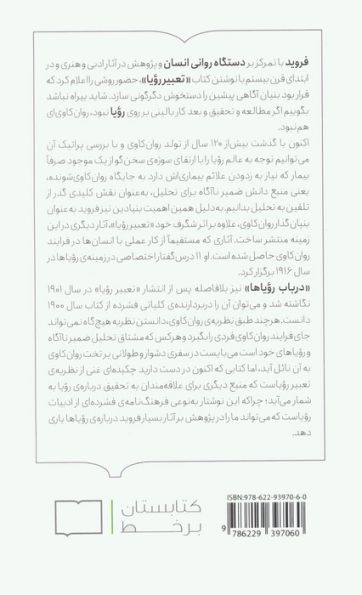 فروید با تمرکز بر دستگاه روانی انسان و پژوهش در آثار ادبی و هنری و در
ابتدای قرن بیستم با نوشتن کتاب «تعبیر رؤیا»، حضور روشی را اعلام کرد که
قرار بود بنیان آگاهی پیشین را دستخوش دگرگونی سازد. شاید بیراه نباشد
بگوییم اگر مطالعه و تحقیق و بعد کار بالینی بر روی رؤیا نبود، روان‌کاوی‌ای
هم نبود.
اکنون با گذشت بیش از ۱۲۰ سال از تولد روان‌کاوی و با بررسی پراتیک آن
می‌توانیم توجه به عالم رؤیا را با ارتقای سوژه‌ی سخن‌گو از یک موجود صرفاً
بیمار که نیاز به زدودن علائم بیماری‌اش دارد به جایگاه روان‌کاوی‌شونده،
یعنی منبع دانش ضمیر ناآگاه برای تحلیل، به‌عنوان نقش کلیدی گذر از
تلقین به تحلیل بدانیم. به‌دلیل همین اهمیت بنیادین نیز فروید به‌عنوان
بنیان‌گذار روان‌کاوی، علاوه بر اثر شگرف خود «تعبیر رؤیا»، آثار دیگری در این
زمینه منتشر ساخت. آثاری که مستقیماً از کار عملی با انسان‌ها در فرایند
روان‌کاوی حاصل شده است. او ۱۱ درس‌گفتار اختصاصی در زمینه‌ی رؤیاها در
سال ۱۹۱۶ برگزار کرد.
«درباب رؤیاها» نیز بلافاصله پس از انتشار «تعبیر رؤیا» در سال ۱۹۰۱
نگاشته شد و می‌توان آن را دربردارنده‌ی کلیاتی فشرده از کتاب سال ۱۹۰۰
دانست. هرچند طبق نظریه‌ی روان‌کاوی، دانستن نظریه هیچ‌گاه نمی‌تواند
جای فرایند روان‌کاوی فردی را بگیرد و هرکس که مشتاق تحلیل ضمیر ناآگاه
و رؤیاهای خود است می‌بایست در سفری دشوار و طولانی بر تخت روان‌کاوی
به آن نائل آید، اما کتابی که اکنون در دست دارید چکیده‌ای غنی از نظریه‌ی
تعبیر رؤیاست که منبع دیگری برای علاقه‌مندان به تحقیق درباره‌ی رؤیا به
شمار می‌آید؛ چراکه این نوشتار به‌نوعی فرهنگ‌نامه‌ی فشرده‌ای از ادبیات
رؤیاست که می‌تواند ما را در پژوهش بر آثار بسیار فروید درباره‌ی رؤیاها یاری
دهد.
کتابستان
برخط
ISBN: 978-622-93970-6-0
9 786229 397060